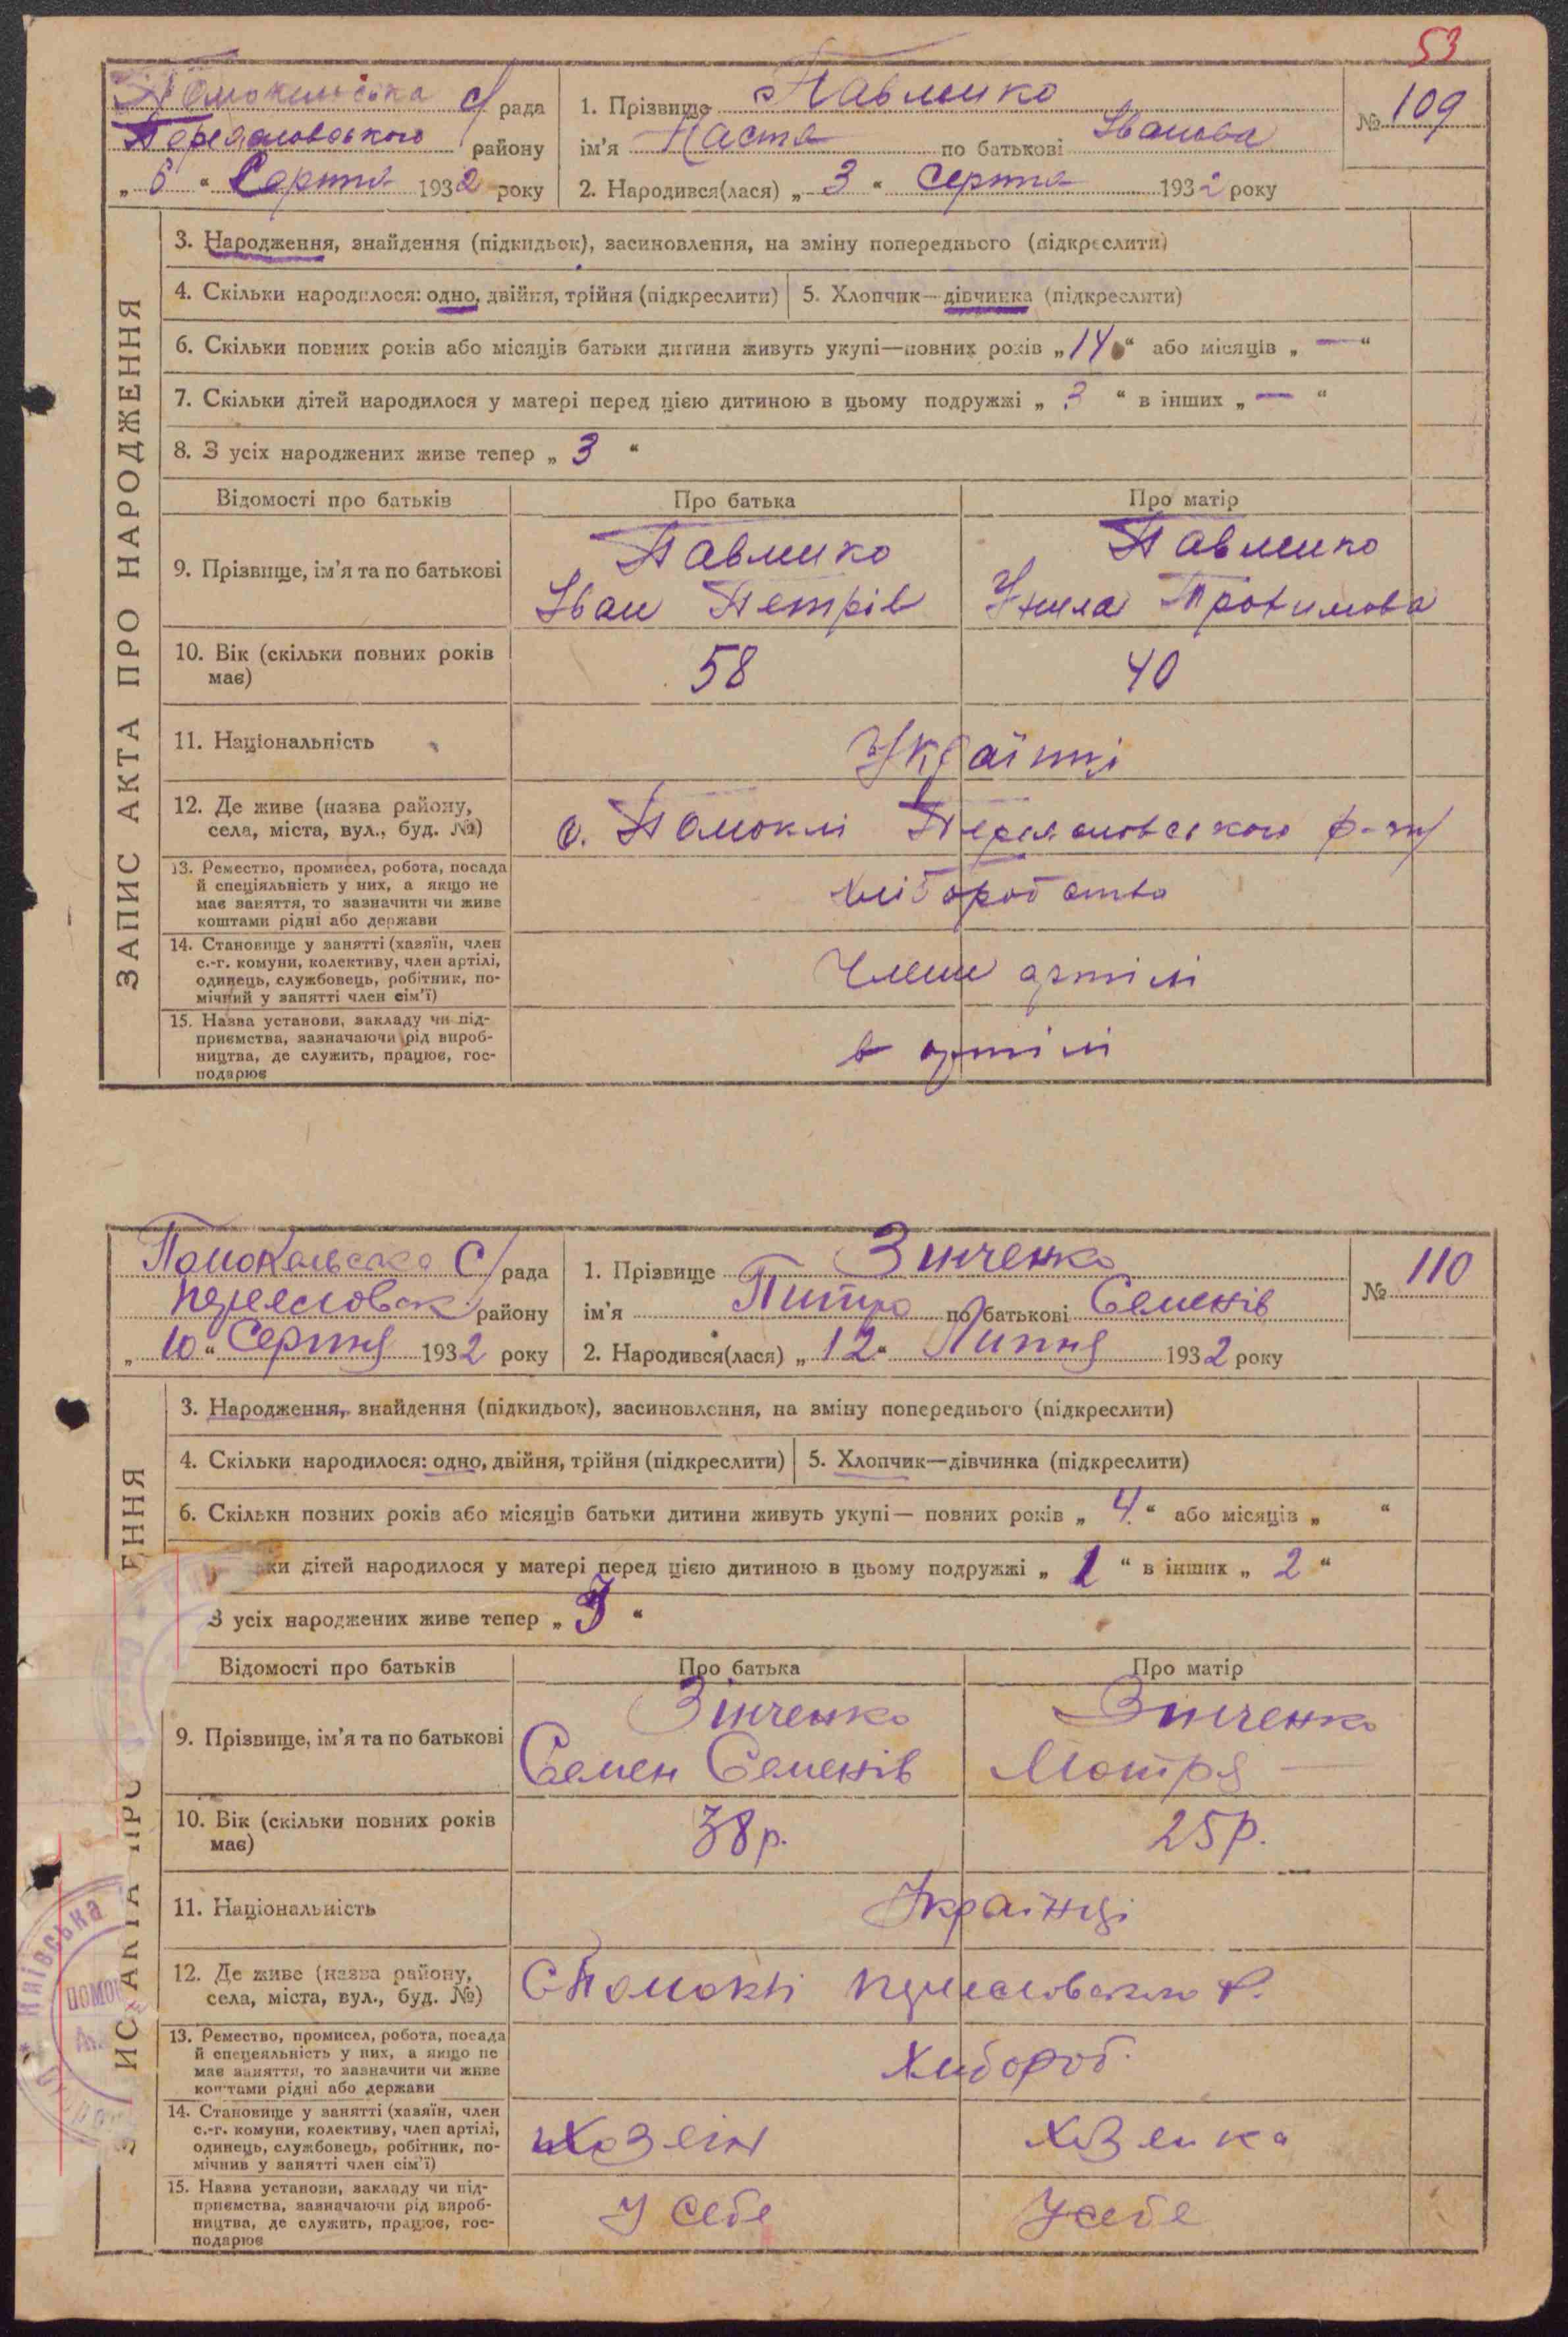 53
Помокельська с/рада
Переяслов
ського району
„6“ Серпня 1932 року
1. Прізвище Павлико
ім'я Настя по батькові Іванова
2. Народився(лася) „3“ Серпня 1932 року
№ 109
ЗАПИС АКТА ПРО НАРОДЖЕННЯ
3. Народження, знайдення (підкидьок), засиновлення, на зміну попереднього (підкреслити)
4. Скільки народилося: одно, двійня, трійня (підкреслити)
5. Хлопчик—дівчинка (підкреслити)
6. Скільки повних років або місяців батьки дитини живуть укупі—повних років „14“ або місяців „—“
7. Скільки дітей народилося у матері перед цією дитиною в цьому подружжі „3“ в інших „—“
8. З усіх народжених живе тепер „3“
Відомості про батьків
Про батька
Про матір
9. Прізвище, ім'я та по батькові
Павлико
Іван Петрів
Павлико
Трохимова
10. Вік (скільки повних років
має)
58
40
11. Національність
Українці
12. Де живе (назва району,
села, міста, вул., буд. №)
с. Помоклі Переясловського р-ну
13. Ремество, промисел, робота, посада
й спеціяльність у них, а якщо не
має заняття, то зазначити чи живе
коштами рідні або держави
хліборобство
14. Становище у занятті (хазяїн, член
с.-г. комуни, колективу, член артілі,
одинець, службовець, робітник, по-
мічний у занятті член сім'ї)
Члени артілі
15. Назва установи, закладу чи під-
приємства, зазначаючи рід вироб-
ництва, де служить, працює, гос-
подарює
в артілі
Помокельська с/рада
Переясловск району
„10“ Серпня 1932 року
1. Прізвище Зинченко
ім'я Питро по батькові Семенів
2. Народився(лася) „12“ Липня 1932 року
№ 110
3. Народження, знайдення (підкидьок), засиновлення, на зміну попереднього (підкреслити)
4. Скільки народилося: одно, двійня, трійня (підкреслити)
5. Хлопчик—дівчинка (підкреслити)
6. Скільки повних років або місяців батьки дитини живуть укупі— повних років „4“ або місяців „ “
ки дітей народилося у матері перед цією дитиною в цьому подружжі „1“ в інших „2“
З усіх народжених живе тепер „3“
Відомості про батьків
Про батька
Про матір
9. Прізвище, ім'я та по батькові
Зінченко
Семен Семенів
Зинченко
Мотря —
10. Вік (скільки повних років
має)
38 р.
25 р.
11. Національність
Українці
12. Де живе (назва району,
села, міста, вул., буд. №)
с Помоклі Переясловського р.
13. Ремество, промисел, робота, посада
й спецеяльність у них, а якщо не
має заняття, то зазначити чи живе
коштами рідні або держави
Хлібороб.
14. Становище у занятті (хазяїн, член
с.-г. комуни, колективу, член артілі,
одинець, службовець, робітник, по-
мічнив у занятті член сім'ї)
Хозяін
Хозяика
15. Назва установи, закладу чи під-
приємства, зазначаючи рід вироб-
ництва, де служить, працює, гос-
подарює
У себе
У себе
Київська